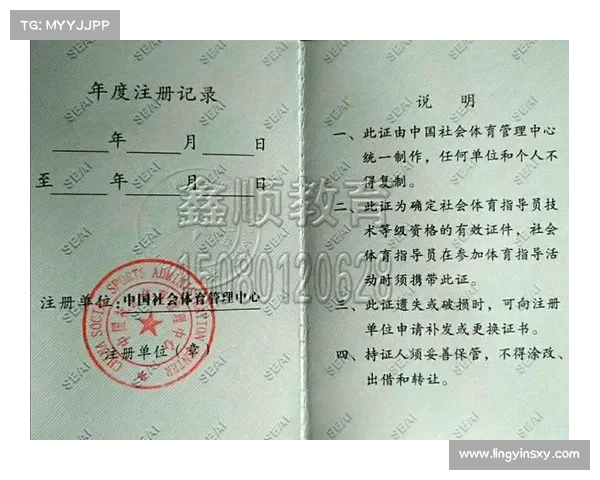 TG: MYYJJPP
年度注册记录
年 月 日
至 年 月 日
注册单位:中国社会体育管理中心
注册单位(章)
CHINA SOCIAL SPORTS ADMINISTRATION CENTER
说 明
一、此证由中国社会体育管理中心
统一制作，任何单位和个人不
得复制。
二、此证为确定社会体育指导员技
术等级资格的有效证件，社会
体育指导员在参加体育指导活
动时须携带此证。
三、此证遗失或破损时，可向注册
单位申请补发或更换证书。
四、持证人须妥善保管，不得涂改、
出借和转让。
鑫顺教育
15080120629
SEAI
www.lingyinsxy.com